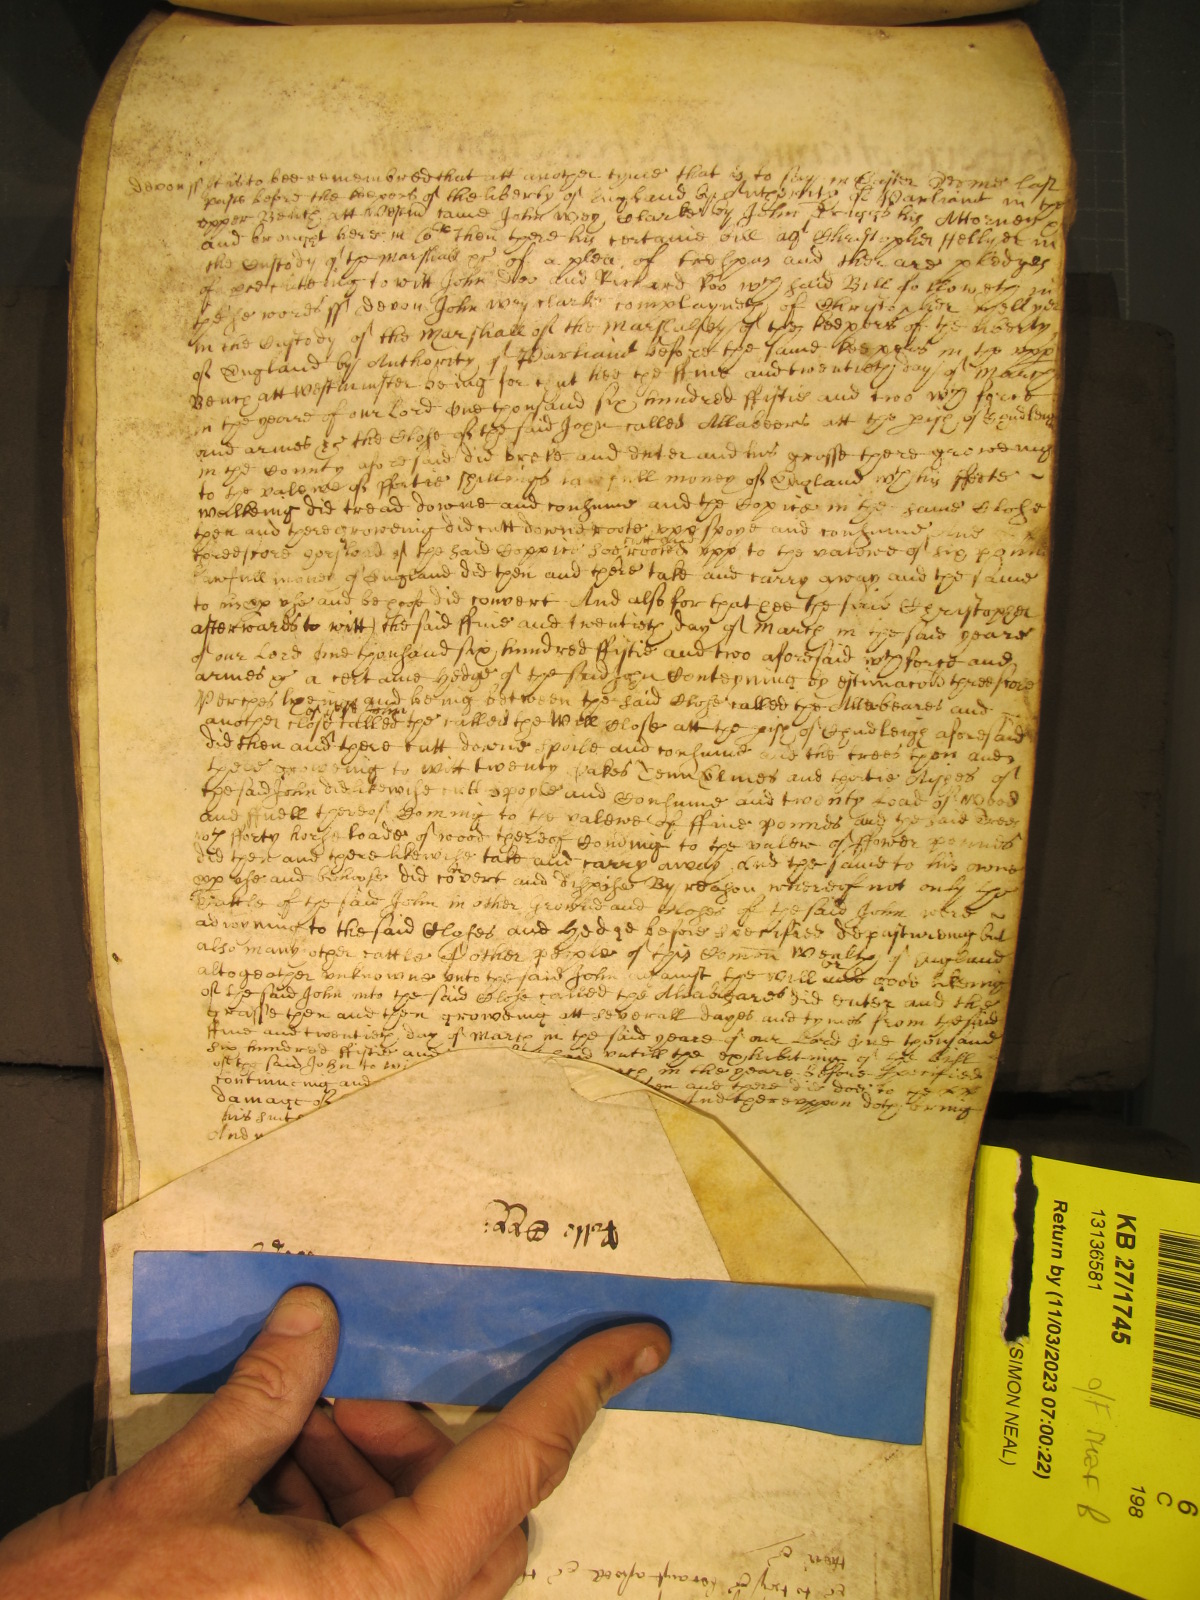 Devon ss It is to bee remembred that att another tyme that is to say in Easter Terme last
past before the keepers of the liberty of England by Authority of Parliamt in the
upper Bench att Westmr came John Wey Clarke by John his Attorney
and brought here in Cort then there his certaine bill agt Christopher Hellyer in
the Custody of the Marshall &c of a plea of Trespas and there are pledges
of prosecuteing to witt John Doo and Richard Roo wch said Bill followeth in
these words ss Devon John Wey Clarke complayneth of Christopher Hellyer
in the Custody of the Marshall of the Marshalsey of the keepers of the liberty
of England by Authority of Parliamt before the same keepers in the upp
Bench att Westminster being for that hee the ffive and twentieth day of March
in the yeare of our Lord One thousand six hundred ffiftie and two wth force
and armes &c the Close of the said John called Allabeers att the pish of Chudleigh
in the County aforesaid did breke and enter and his grasse there groweing
to the valewe of ffortie shillings lawfull money of England wth his ffeete
walkeing did tread downe and consume and the Coppice in the same Close
then and there groweing did cutt downe roote upp spoyle and consume and
threescore horsload of the said Coppice soe cutt and rooted upp to the valewe of six pounds
lawfull money of England did then and there take and carry away and the same
to his owne use and behoofe did convert And also for that hee the said Christopher
afterwards to witt the said ffive and twentieth day of March in the said yeare
of our Lord One thousand six hundred ffiftie and two aforesaid wth force and
armes &c a certaine hedge of the said John Conteyning by estimacon threescore
Perches lyeing and being between the said Close called the Allabeares and
another close of the said John called the called the Well Close att the pish of Chudleigh aforesaid
did then and there cutt downe spoile and consume and the trees then and
there groweing to witt twenty Oakes Tenn Elmes and thirtie Ashes of
the said John did likewise cutt spoyle and Consume and twenty load of Wood
and ffuell thereof Comming to the valewe of ffive Pounds and the said trees
wth fforty horse loade of wood thereof Comming to the valew of ffower pounds
did then and there likewise take and carry away and the same to his owne
use and behoofe did covert and dispose By reason whereof not only the
Cattle of the said John in other grownd and Closes of the said John were
adioyning to the said Closes and Hedge before specified depastureing but
also many other cattle of other people of this Comon Wealth of England
altogeather unknowne unto the said John against the will and good likeing
of the said John into the said Close called the Allabeares did enter and the
grasse then and then groweing att severall dayes and tymes from the said
ffive and twentieth day of March in the said yeare of our Lord One thousand
six hundred ffiftie and untill the exhibiting of the bill
of the said John to wi in the yeare before specified
continuing and en and there did doe to the
damage of And thereuppon doth bring
his suite
And
Pasche
KB 27/1745
13136581
Return by (11/03/2023 07:00:22)
(SIMON NEAL)
6
C
198